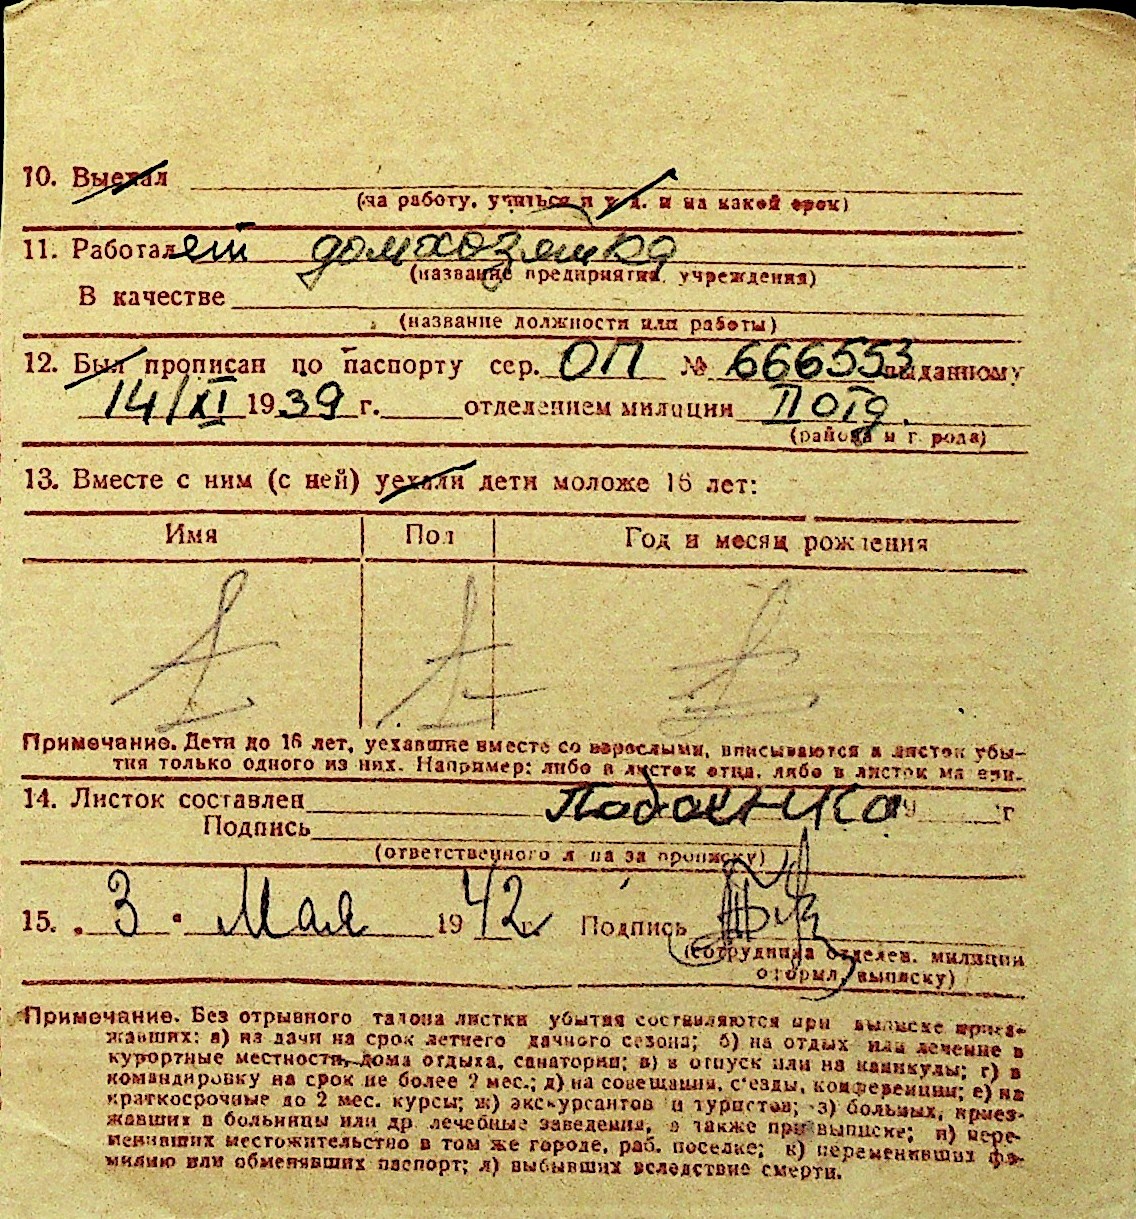 10. Выехал
(на работу, учиться и т. д. и на какой срок)
11. Работает домхозяйка
(название предприятия, учреждения)
В качестве
(название должности или работы)
12. Был прописан по паспорту сер. ОП № 666553 выданному
14/XI 1939 г. отделением милиции II отд.
(района и города)
13. Вместе с ним (с ней) уехали дети моложе 16 лет:
Имя Пол Год и месяц рождения
Примечание. Дети до 16 лет, уехавшие вместе со взрослыми, вписываются в листок убы-
тия только одного из них. Например: либо в листок отца, либо в листок ма ери.
14. Листок составлен 19 г
Подпись
(ответственного л на за прописку)
15. „3" Мая 1942 г. Подпись
(сотрудника отделен. милиции
оформл. выписку)
Примечание. Без отрывного талона листки убытия составляются при выписке приез-
жавших: а) из дачи на срок летнего дачного сезона; б) на отдых или лечение в
курортные местности, дома отдыха, санатории; в) в отпуск или на каникулы; г) в
командировку на срок не более 2 мес.; д) на совещания, с'езды, конференции; е) на
краткосрочные до 2 мес. курсы; ж) экскурсантов и туристов; з) больных, приез-
жавших в больницы или др. лечебные заведения, а также при выписке; и) пере-
менивших местожительство в том же городе, раб. поселке; к) переменивших фа-
милию или обменявших паспорт; л) выбывших вследствие смерти.